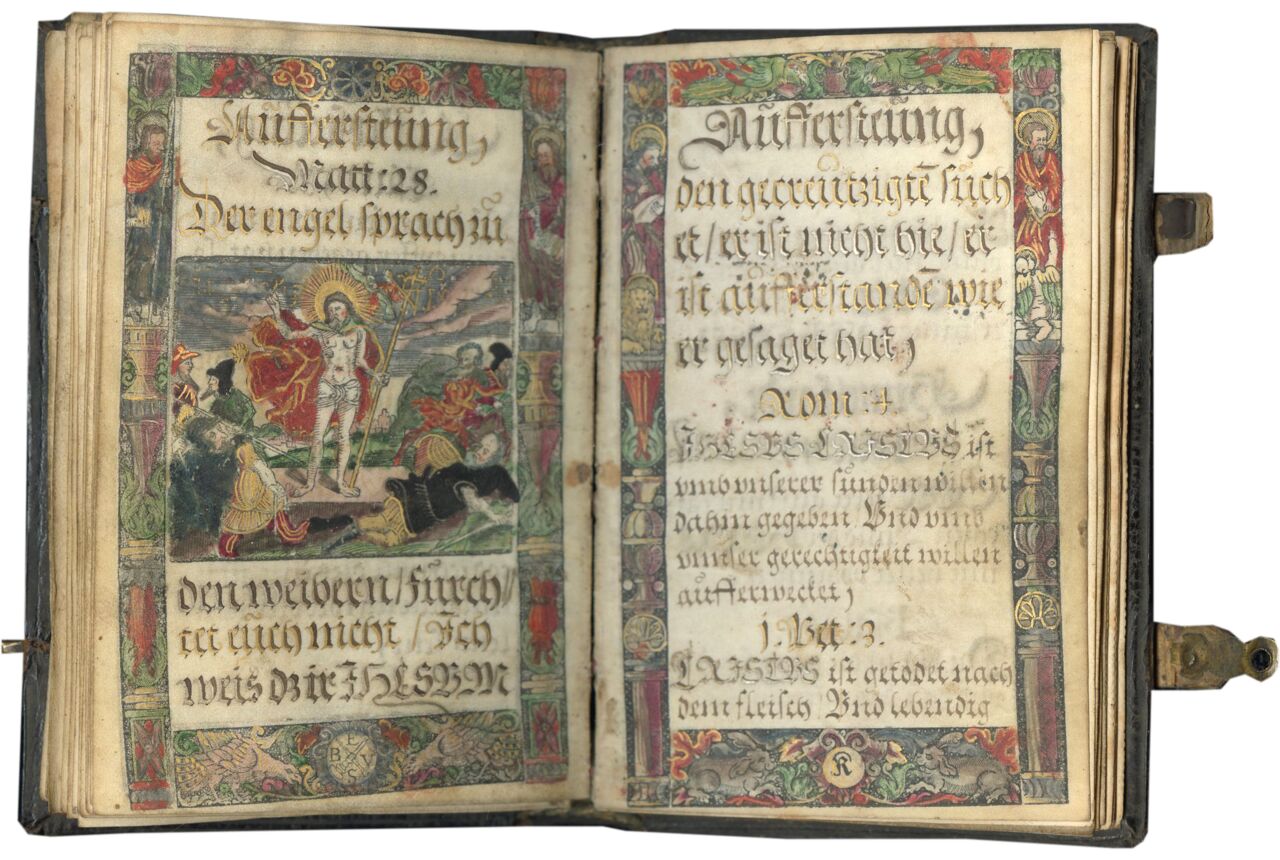 Auffersteung,
Matt: 28.
Der engel sprach zů
den weibern / furch//
tet eüch nicht / Ich
weis dz ir IHESVM
B S
Aüffersteüng,
den gecreützigtē sůch
et / er ist nicht hie / er
ist aüfferstandē wie
er gesaget hat,
Rom: 4.
IHESVS CRISTVS ist
vmb vnserer sunden willen
dahin gegeben, Vnd vmb
vnnser gerechtigkeit willen
aüfferwecket,
1. Pet: 3.
CRISTVS ist getodet nach
dem fleisch, Vnd lebendig